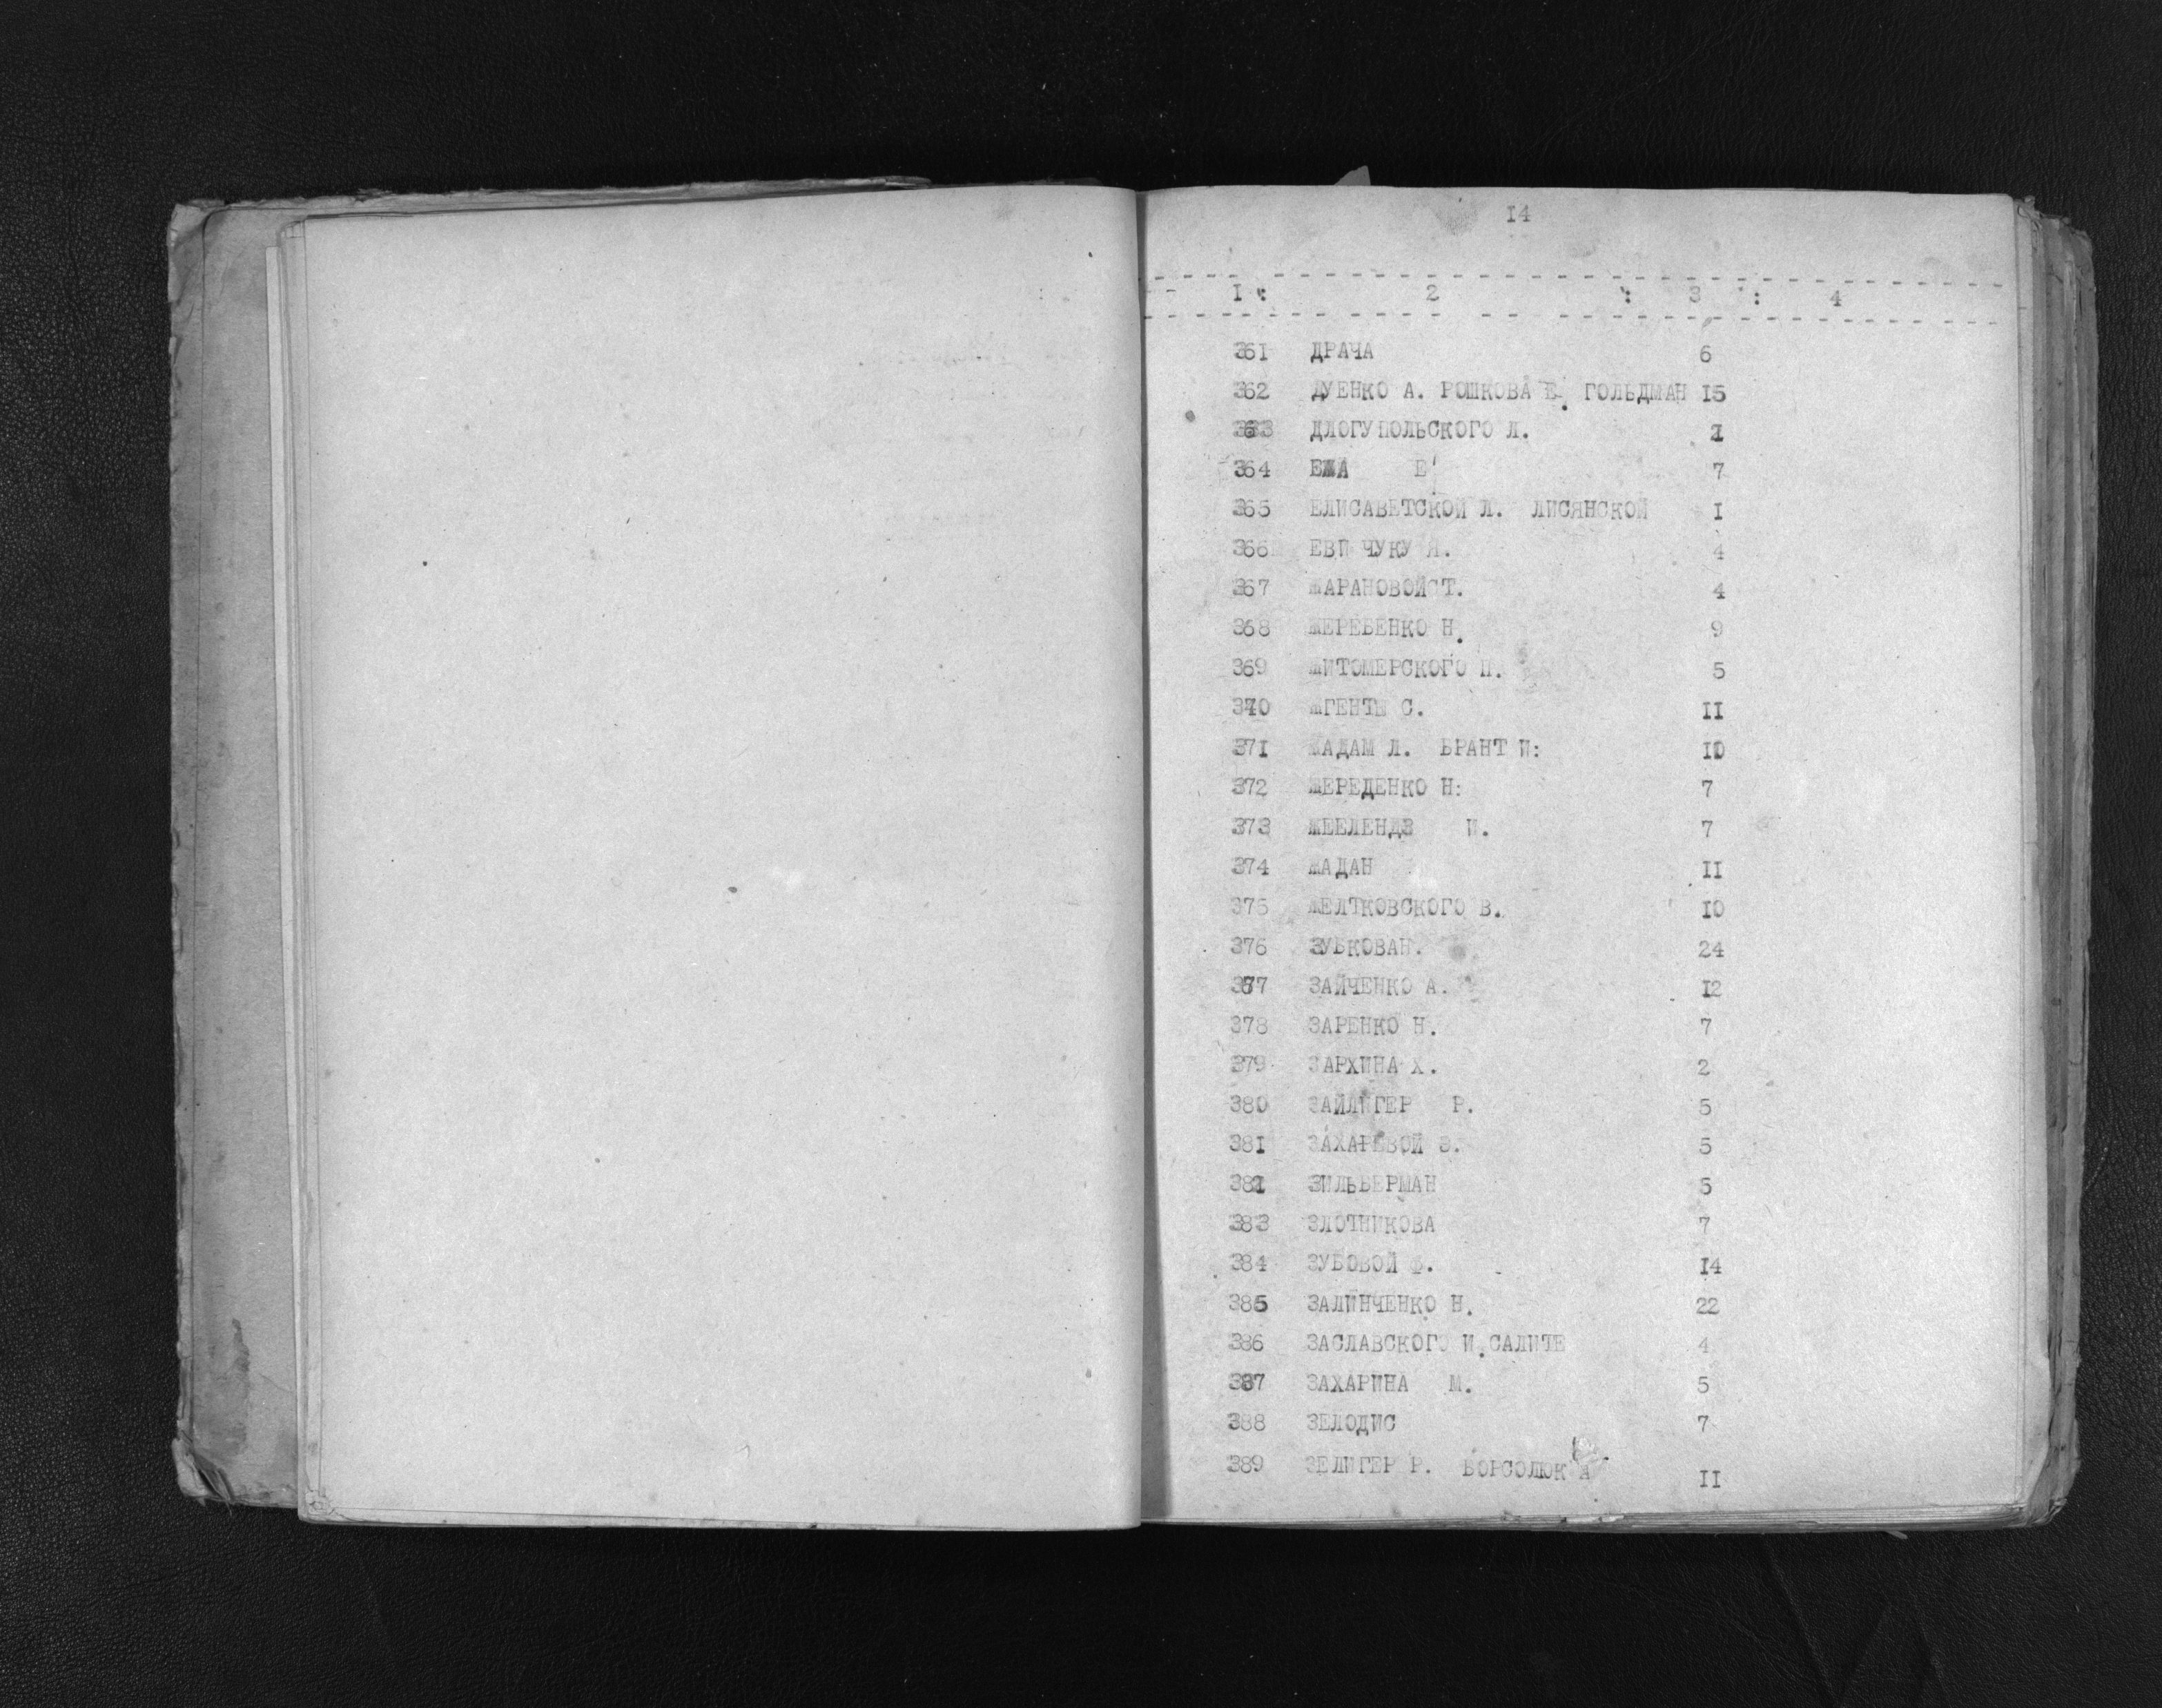 14
I : 2 : 3 : 4
361 ДРАЧА 6
362 ДУЕНКО А. РОШКОВА Е. ГОЛЬДМАН I5
363 ДЛОГУПОЛЬСКОГО Л.
364 ЕЖА Е 7
365 ЕЛИСАВЕТСКОЙ Л. ЛИСЯНСКОЙ I
366 ЕВИ ЧУКУ Я. 4
367 ЖАРАНОВОЙ Т. 4
368 ЖЕРЕБЕНКО Н. 9
369 ЖИТОМЕРСКОГО П. 5
370 ЖГЕНТЫ С. II
371 ЖАДАМ Л. БРАНТ И: I0
372 ЖЕРЕДЕНКО Н: 7
373 ЖЕЕЛЕНДЗ И. 7
374 ЖАДАН II
375 ЖЕЛТКОВСКОГО В. I0
376 ЗУБКОВАН. 24
377 ЗАЙЧЕНКО А. I2
378 ЗАРЕНКО Н. 7
379 ЗАРХИНА Х. 2
380 ЗАЙЛИГЕР Р. 5
381 ЗАХАРЕВОЙ З. 5
382 ЗИЛЬБЕРМАН 5
383 ЗЛОТНИКОВА 7
384 ЗУБОВОЙ Ф. I4
385 ЗАЛИНЧЕНКО Н. 22
386 ЗАСЛАВСКОГО И. САЛИТЕ 4
387 ЗАХАРИНА М. 5
388 ЗЕЛОДИС 7
389 ЗЕЛИГЕР Р. БОРСОЛЮК А II